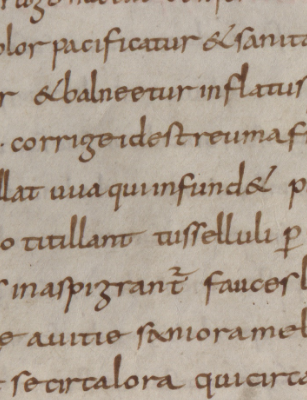 olor pacificatur & sanita
r & balneetur inflatus
. corrige idest reuma fr
llat uua qui infund& p
o titillant tusselluli p̄
s inaspigrant̄ fauces l
e auitie saniora mel
t se circa lora qui circa